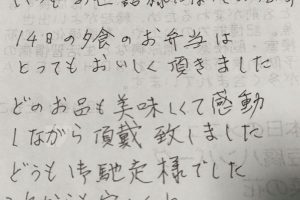 14日の夕食のお弁当は
とってもおいしく頂きました
どのお品も美味しくて感動
しながら頂戴致しました
どうも御馳走様でした